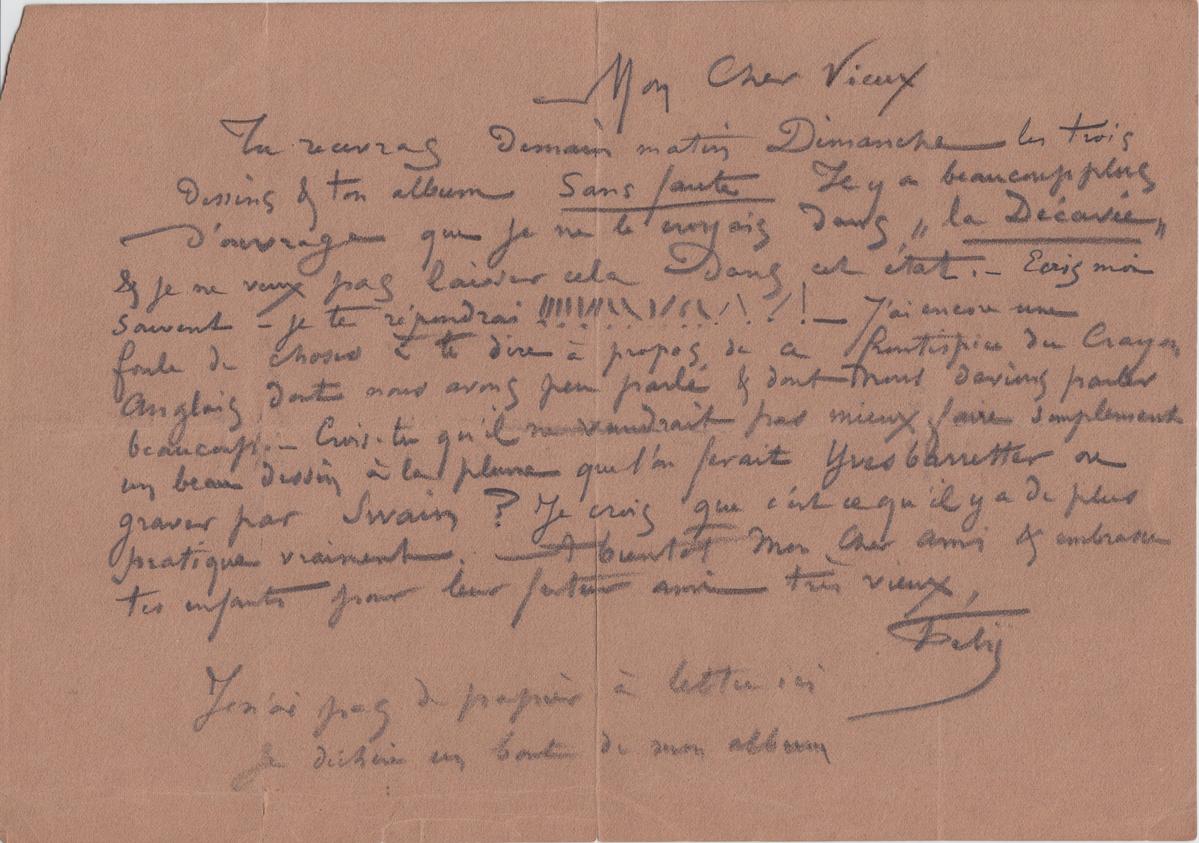 Mon Cher Vieux
Tu recevras Demain matin Dimanche les trois
Dessins & ton album Sans faute Il y a beaucoup plus
D'ouvrage que je ne le croyais dans „la Décavée„
& je ne veux pas laisser cela Dans cet état. – Ecris moi
souvent – je te répondrai !!!!!!!!!!!!!!!!! — J'ai encore une
foule de choses à te dire à propos de ce frontispice du Crayon
Anglais dont nous avons peu parlé & dont nous devions parler
beaucoup. – Crois-tu qu'il ne vaudrait pas mieux faire simplement
un beau dessin à la plume que l'on ferait Yvesbarretter ou
graver par Swain ? Je crois que c'est ce qu'il y a de plus
pratique vraiment. — A bientôt Mon Cher Ami & embrasse
tes enfants pour leur futur ami très vieux,
Je n'ai pas de papier à lettre ici
Je déchire un bout de mon album